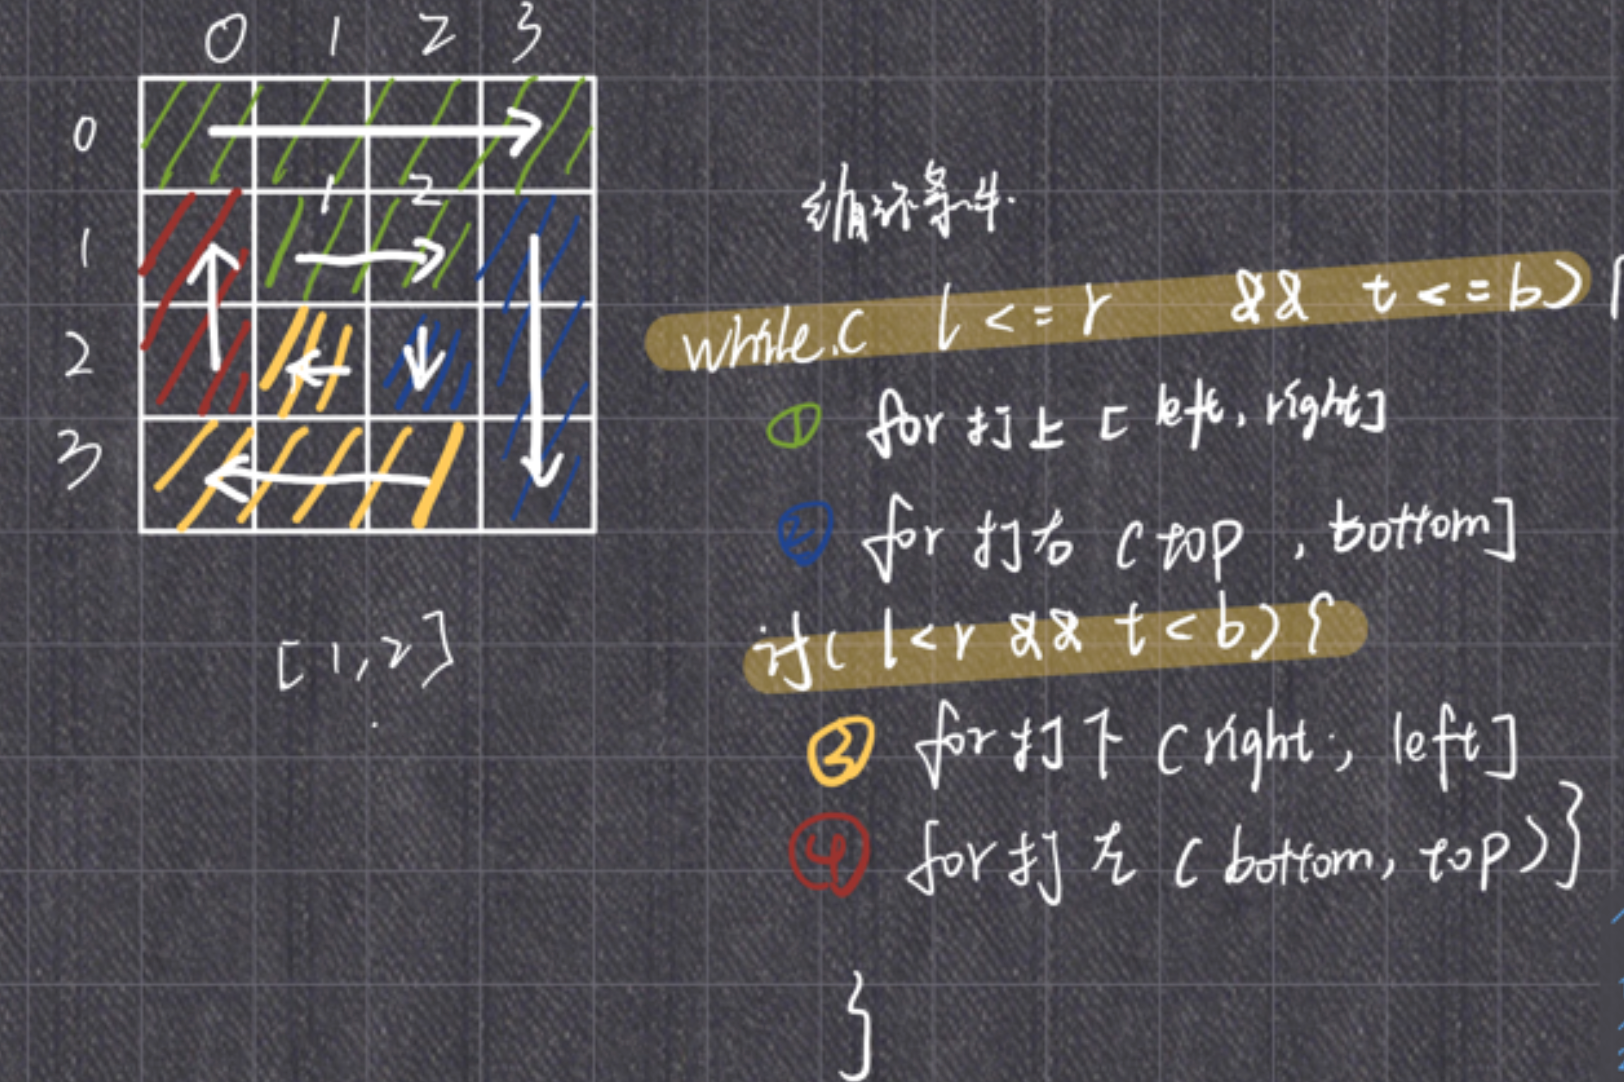 0 1 2 3
0
1
2
3
1 2
[1,2]
循环条件.
while( l <= r && t <= b) {
① for 打上 [left, right]
② for 打右 (top , bottom]
if( l < r && t < b) {
③ for 打下 (right , left]
④ for 打左 (bottom, top) }
}